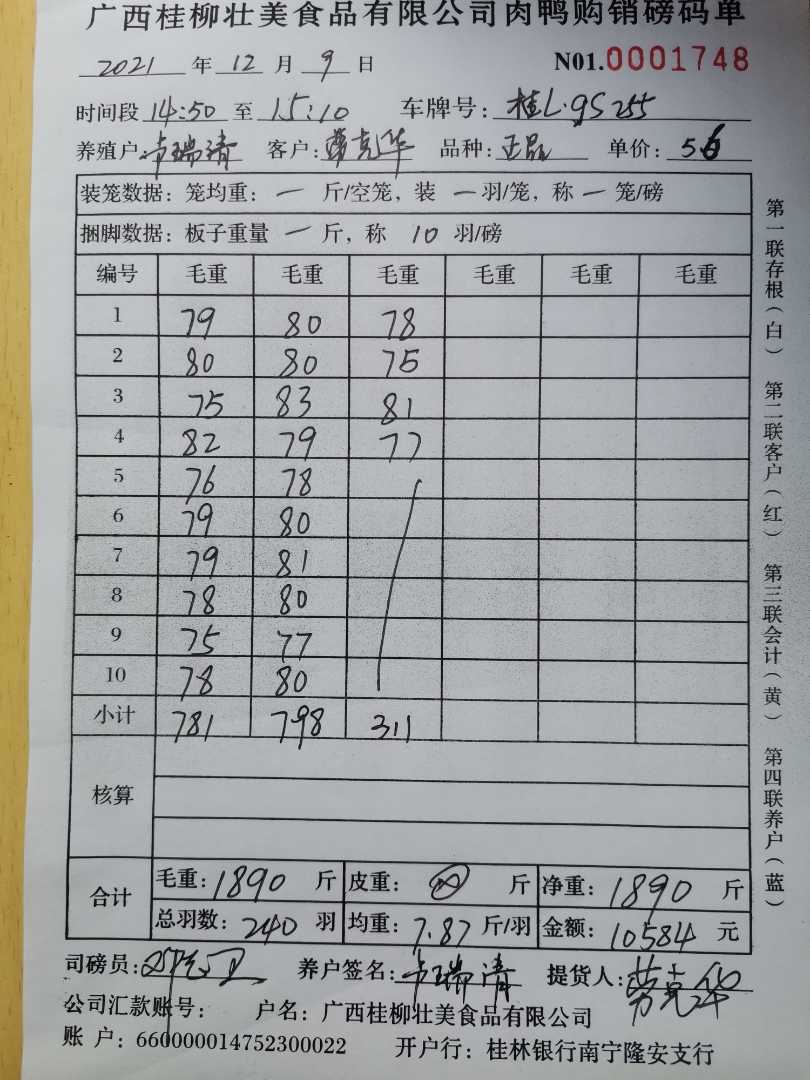 广西桂柳壮美食品有限公司肉鸭购销磅码单
2021 年 12 月 9 日 N01.0001748
时间段 14:50 至 15:10 车牌号: 桂L·9S255
养殖户: 卢瑞清 客户: 劳克华 品种: 正品 单价: 5.6
装笼数据: 笼均重: 一 斤/空笼, 装 一 羽/笼, 称 一 笼/磅
捆脚数据: 板子重量 一 斤, 称 10 羽/磅
编号 毛重 毛重 毛重 毛重 毛重 毛重
1 79 80 78
2 80 80 75
3 75 83 81
4 82 79 77
5 76 78
6 79 80
7 79 81
8 78 80
9 75 77
10 78 80
小计 781 798 311
核算
合计 毛重: 1890 斤 皮重: 斤 净重: 1890 斤
总羽数: 240 羽 均重: 7.87 斤/羽 金额: 10584 元
司磅员: 养户签名: 卢瑞清 提货人: 劳克华
公司汇款账号: 户名: 广西桂柳壮美食品有限公司
账 户: 660000014752300022 开户行: 桂林银行南宁隆安支行
第一联存根(白) 第二联客户(红) 第三联会计(黄) 第四联养户(蓝)